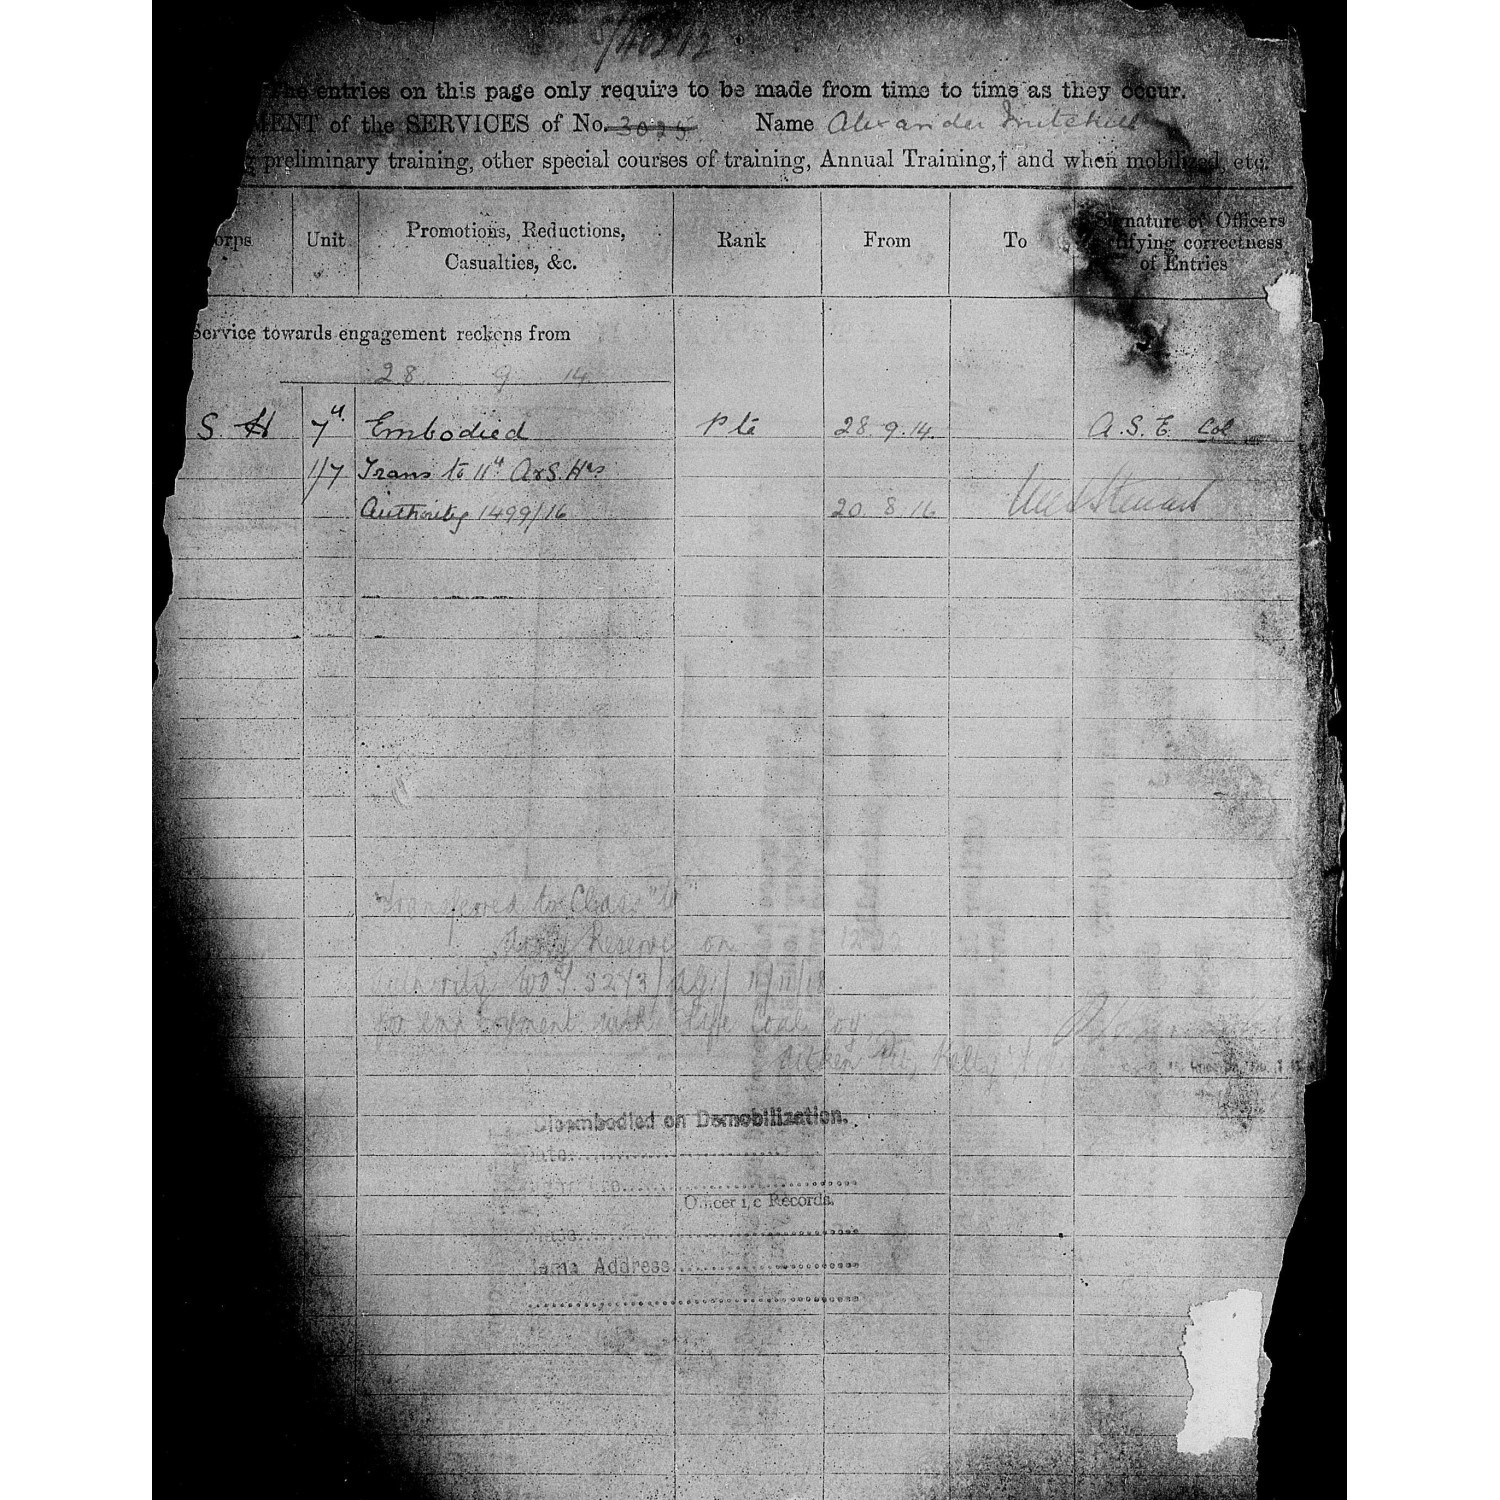 The entries on this page only require to be made from time to time as they occur.
MENT of the SERVICES of No. 3025 Name Alexander Mitchell
preliminary training, other special courses of training, Annual Training,† and when mobilized, etc.
orps Unit Promotions, Reductions, Casualties, &c. Rank From To Signature of Officers certifying correctness of Entries
Service towards engagement reckons from
28 9 14
S. H 7th Embodied Pte 28.9.14. A.S.E. Col
1/7 Trans to 11th A&S. Hrs
Authority 1499/16 20.8.16 Stewart
Transferred to Class "W"
Army Reserve on 12
Authority WO 3243/ 11/11/18
for employment with Fife Coal Coy
Aitken Pit, Kelty
Disembodied on Demobilization.
Date
Officer i/c Records.
Address